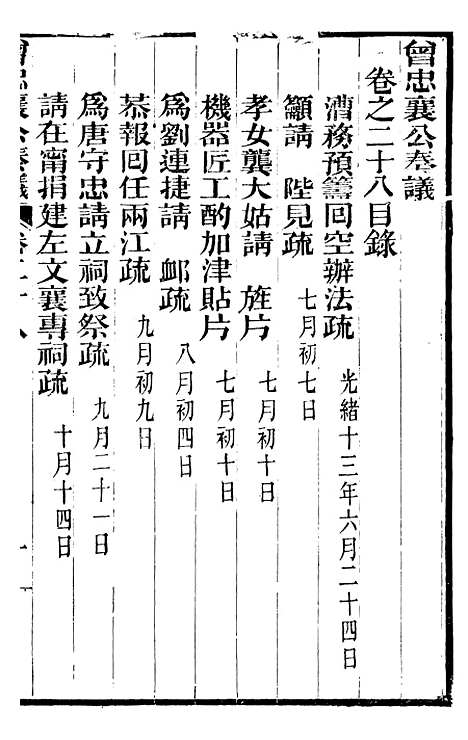 曾忠襄公奏議
卷之二十八目錄
漕務預籌回空辦法疏 光緒十三年六月二十四日
籲請 陛見疏 七月初七日
孝女龔大姑請 旌片 七月初十日
機器匠工酌加津貼片 七月初十日
爲劉連捷請 卹疏 八月初四日
恭報回任兩江疏 九月初九日
爲唐守忠請立祠致祭疏 九月二十一日
請在甯捐建左文襄專祠疏 十月十四日
曾忠襄公奏議 卷二十八 一